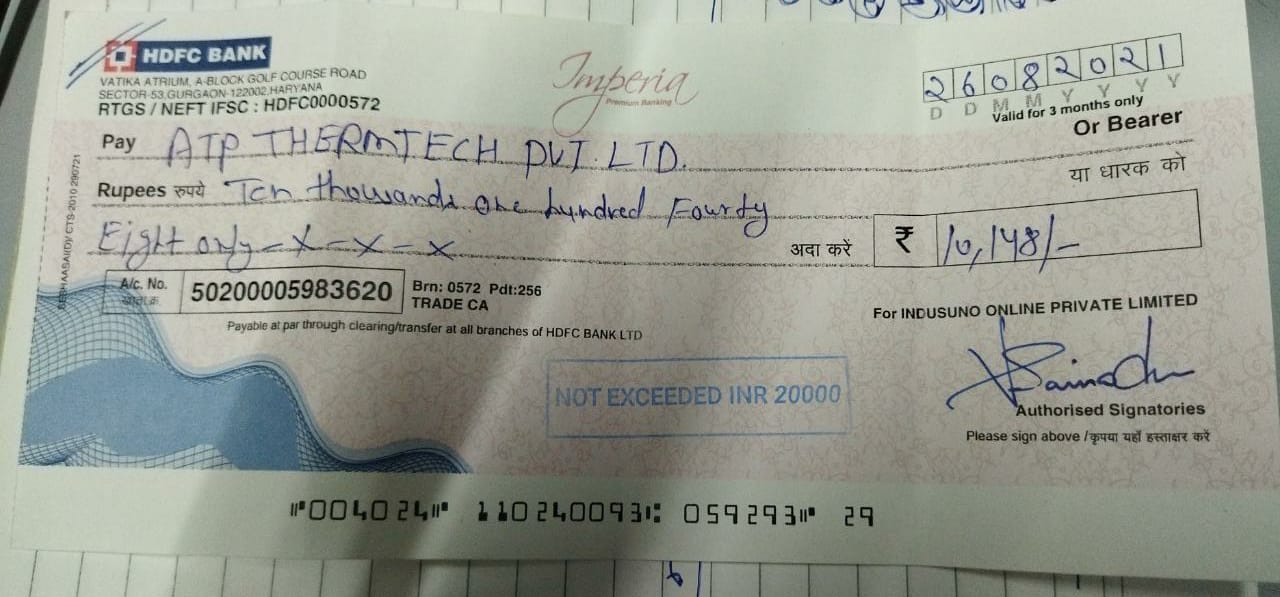 HDFC BANK
VATIKA ATRIUM, A-BLOCK GOLF COURSE ROAD
SECTOR-53,GURGAON-122002,HARYANA
RTGS / NEFT IFSC : HDFC0000572
Imperia
Premium Banking
26082021
D D M M Y Y Y Y
Valid for 3 months only
Pay ATP THERMTECH PVT. LTD. Or Bearer
या धारक को
Rupees रुपये Ten thousands one hundred Fourty
Eight only - x - x - x अदा करें ₹ 10,148/-
A/c. No. 50200005983620 Brn: 0572 Pdt:256
TRADE CA
Payable at par through clearing/transfer at all branches of HDFC BANK LTD
For INDUSUNO ONLINE PRIVATE LIMITED
NOT EXCEEDED INR 20000
Authorised Signatories
Please sign above / कृपया यहाँ हस्ताक्षर करें
CTS-2010 290721
⑈004024⑈ 110240093⑆ 059293⑈ 29